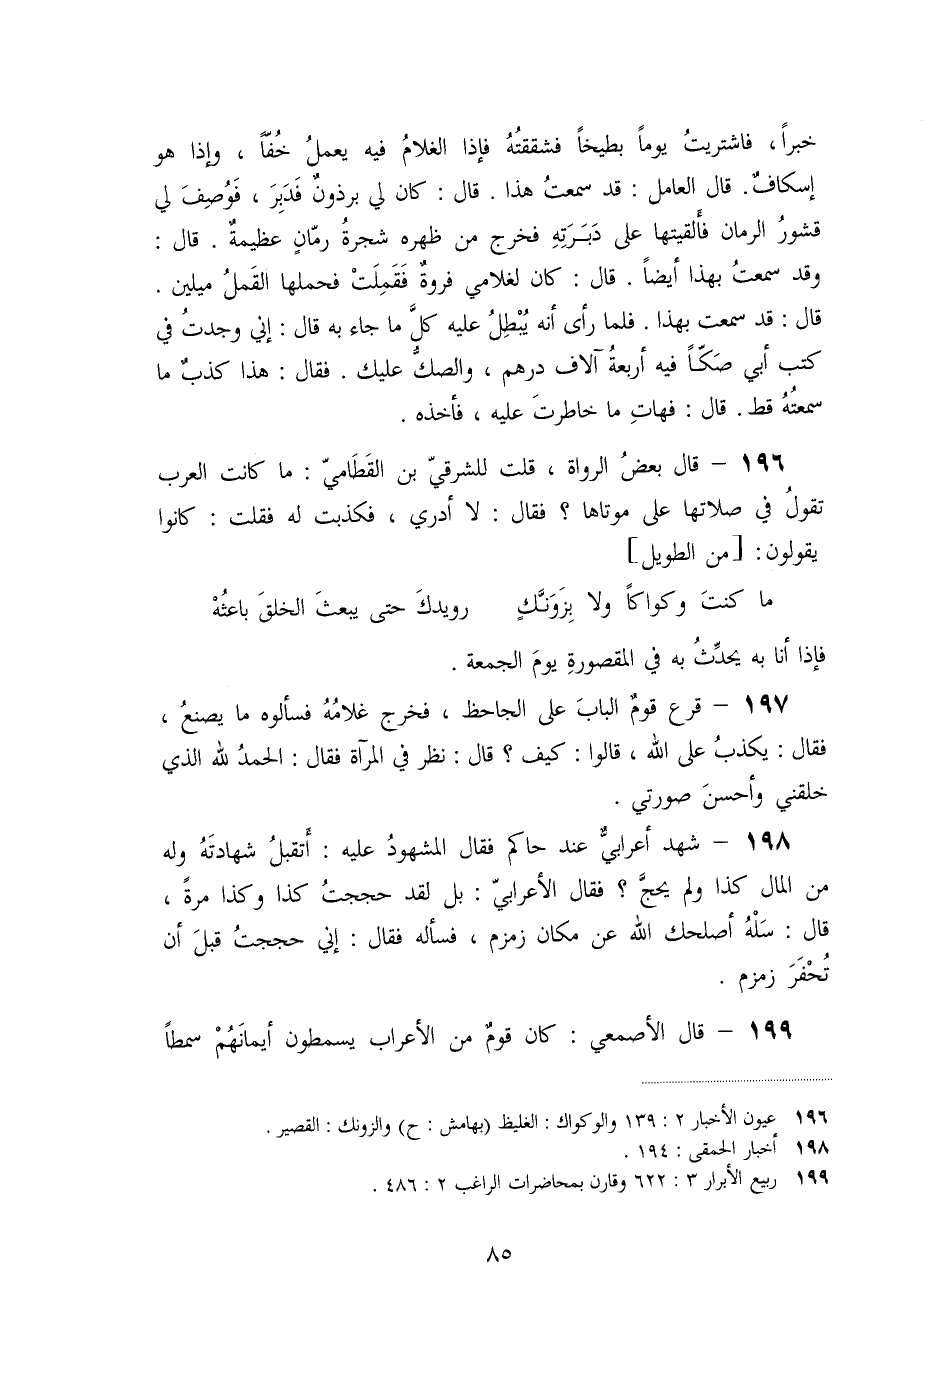 خبراً، فاشتريتُ يوماً بطيخاً فشققتُهُ فإذا الغلامُ فيه يعملُ خُفّاً ، وإذا هو
إسكافٌ. قال العامل : قد سمعتُ هذا . قال : كان لي برذونٌ فَدَبِرَ ، فَوُصِفَ لي
قشورُ الرمان فألقيتها على دَبَرَتِهِ فخرج من ظهره شجرةُ رمّانٍ عظيمةٌ . قال :
وقد سمعتُ بهذا أيضاً . قال : كان لغلامي فروةٌ فَقَمِلَتْ فحملها القَملُ ميلين .
قال : قد سمعت بهذا . فلما رأى أنه يُبْطِلُ عليه كلَّ ما جاء به قال : إني وجدتُ في
كتب أبي صَكّاً فيه أربعةُ آلاف درهم ، والصكُّ عليك . فقال : هذا كذبٌ ما
سمعتُهُ قط . قال : فهاتِ ما خاطرتَ عليه ، فأخذه .
١٩٦ – قال بعضُ الرواة ، قلت للشرقيّ بن القَطَاميّ : ما كانت العرب
تقولُ في صلاتها على موتاها ؟ فقال : لا أدري ، فكذبت له فقلت : كانوا
يقولون : [من الطويل]
ما كنتَ وكواكاً ولا بِزَوَنَّكٍ رويدكَ حتى يبعثَ الخلقَ باعثُهْ
فإذا أنا به يحدِّثُ به في المقصورةِ يومَ الجمعة .
١٩٧ – قرع قومٌ البابَ على الجاحظ ، فخرج غلامُهُ فسألوه ما يصنعُ ،
فقال : يكذبُ على الله ، قالوا : كيف ؟ قال : نظر في المرآة فقال : الحمدُ لله الذي
خلقني وأحسنَ صورتي .
١٩٨ – شهد أعرابيٌّ عند حاكم فقال المشهودُ عليه : أَتقبلُ شهادتَهُ وله
من المال كذا ولم يحجَّ ؟ فقال الأعرابيّ : بل لقد حججتُ كذا وكذا مرةً ،
قال : سَلْهُ أصلحك الله عن مكان زمزم ، فسأله فقال : إني حججتُ قبلَ أن
تُحْفَرَ زمزم .
١٩٩ – قال الأصمعي : كان قومٌ من الأعراب يسمطون أيمانَهُمْ سمطاً
١٩٦ عيون الأخبار ٢ : ١٣٩ والوكواك : الغليظ (بهامش : ح) والزونك : القصير .
١٩٨ أخبار الحمقى : ١٩٤ .
١٩٩ ربيع الأبرار ٣ : ٦٢٢ وقارن بمحاضرات الراغب ٢ : ٤٨٦ .
٨٥